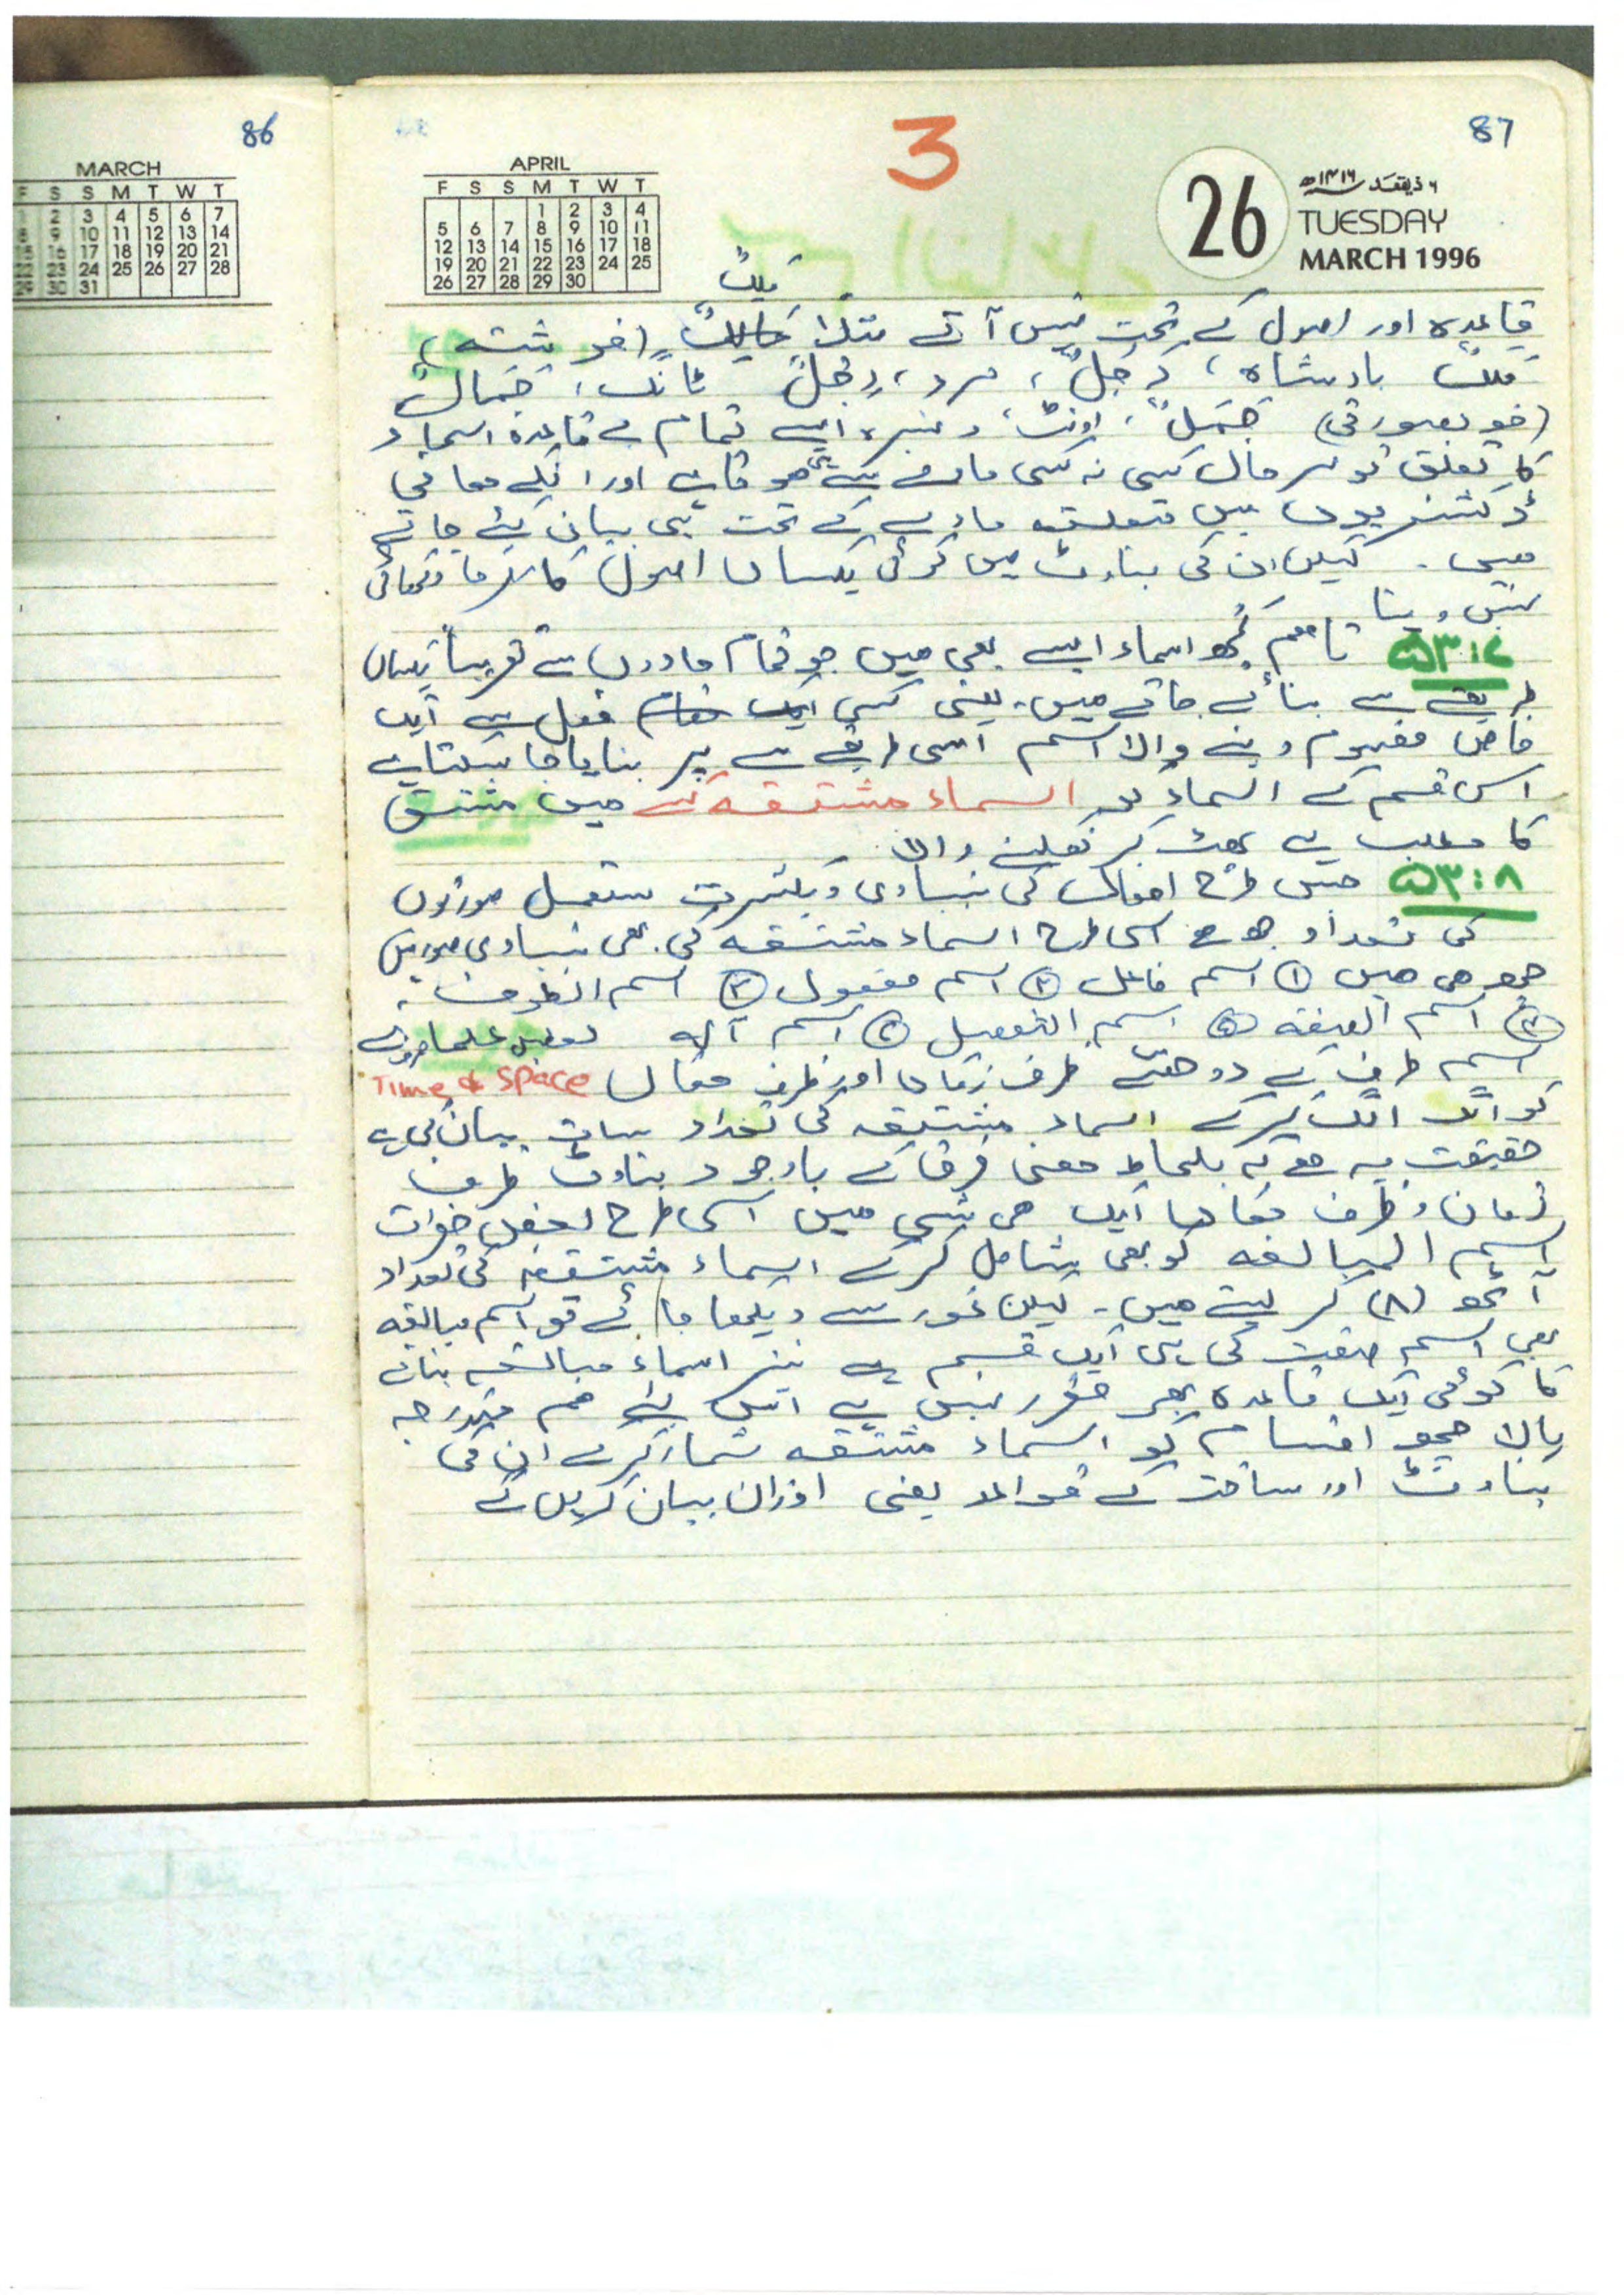 86
MARCH
F S S M T W T
1 2 3 4 5 6 7
8 9 10 11 12 13 14
15 16 17 18 19 20 21
22 23 24 25 26 27 28
29 30 31
87
3
APRIL
F S S M T W T
1 2 3 4
5 6 7 8 9 10 11
12 13 14 15 16 17 18
19 20 21 22 23 24 25
26 27 28 29 30
26
۶ ذیقعد ۱۴۱۶ھ
TUESDAY
MARCH 1996
مَلَکٌ
قاعدہ اور اصول کے تحت نہیں آتے مثلاً (فرشتہ)،
مَلِکٌ بادشاہ، رَجُلٌ، مرد، رِجْلٌ ٹانگ، جَمَالٌ
(خوبصورتی) جَمَلٌ، اونٹ، وغیرہ ایسے تمام بے قاعدہ اسماء
کا تعلق تو بہر حال کسی نہ کسی مادے سے ہی ہوتا ہے اور انکے معانی
ڈکشنریوں میں متعلقہ مادے کے تحت ہی بیان کئے جاتے
ہیں۔ لیکن ان کی بناوٹ میں کوئی یکساں اصول کارفرما دکھائی
نہیں دیتا
۵۳:۷ تاہم کچھ اسماء ایسے بھی ہیں جو تمام مادوں سے تقریباً یکساں
طریقے سے بنائے جاتے ہیں۔ یعنی کسی فعل سے ایک
خاص مفہوم دینے والا اسم اسی طریقے سے پر بنایا جا سکتا ہے
اس قسم کے اسماء کو اسماء مشتقہ کہتے ہیں مشتق
کا مطلب ہے پھٹ کر نکلنے والا
۵۳:۸ جس طرح افعال کی بنیادی و بکثرت مستعمل صورتوں
کی تعداد چھ ہے اسی طرح اسماء مشتقہ کی بھی بنیادی صورتیں
چھ ہی ہیں ① اسم فاعل ② اسم مفعول ③ اسم الظرف،
④ اسم الصفہ ⑤ اسم التفضیل ⑥ اسم آلہ بعض علماء صرف نے
اسم ظرف کے دو حصے ظرف زماں اور ظرف مکاں Time & Space
کو الگ الگ کرکے اسماء مشتقہ کی تعداد سات بیان کی ہے
حقیقت یہ ہے کہ بلحاظ معنی فرق کے باوجود بناوٹ ظرف
زمان و ظرف مکاں ایک ہی شے ہیں اسی طرح بعض حضرات
اسم المبالغہ کو بھی شامل کرکے اسماء مشتقہ کی تعداد
آٹھ (۸) کر لیتے ہیں۔ لیکن غور سے دیکھا جائے تو اسم مبالغہ
بھی اسم صفت کی ہی ایک قسم ہے نیز اسماء مبالغہ بنانے
کا کوئی ایک قاعدہ بھی مقرر نہیں ہے اس لئے ہم مندرجہ
بالا چھ اقسام کو اسماء مشتقہ شمار کرکے ان کی
بناوٹ اور ساخت کے قواعد یعنی اوزان بیان کریں گے